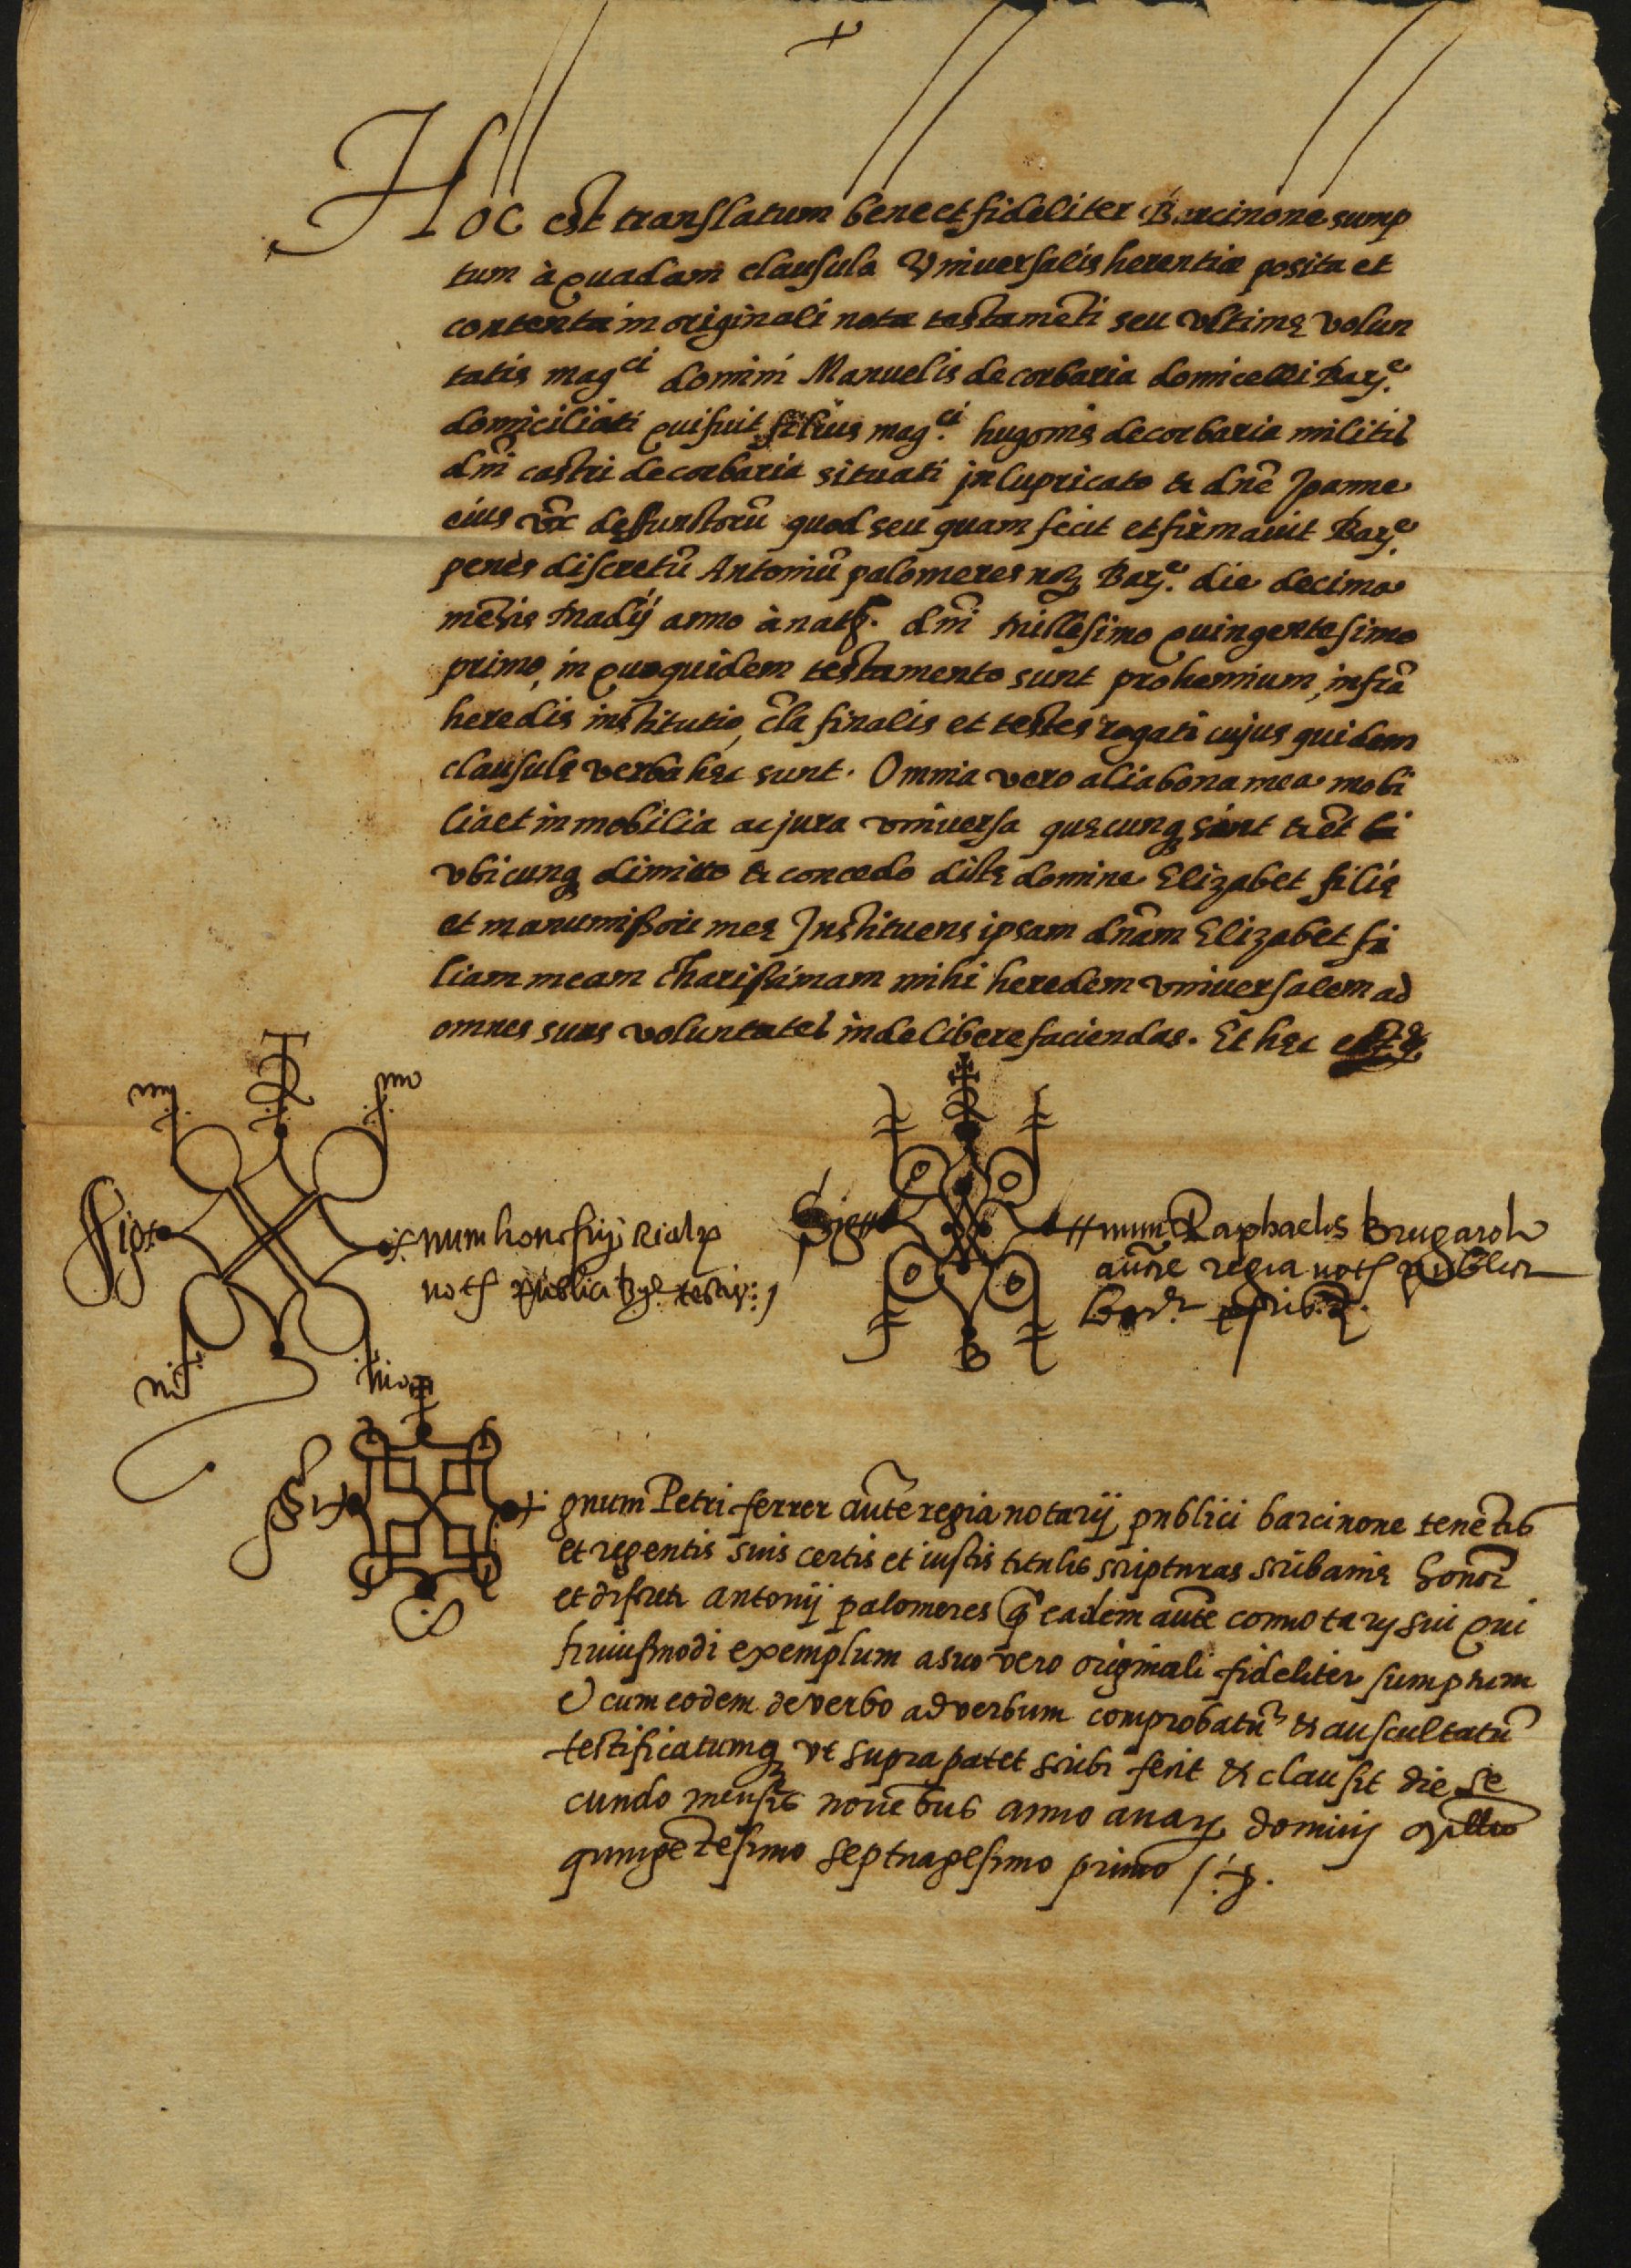 Hoc est translatum bene et fideliter Barcinone sump
tum à quadam clausula Vniuersalis herentiæ posita et
contenta in originali nota testamēti seu vltimę volun
tatis mag.ci domini Manuelis de corbaria domicelli Barẽ.
domiciliati qui fuit filius mag.ci hugonis de corbaria militis
dñi castri de corbaria situati jn lupricato & dnẽ Joanne
eius vx̃ deffunctorũ quod seu quam fecit et firmauit Barẽ.
penès discretũ Antoniũ palomeres noṫ Barẽ. die decima
mẽsis madij anno à natẽ. dñi millesimo quingentesimo
primo, in quo quidem testamento sunt prohemium, infrã
heredis institutio, cl̃a finalis et testes rogati cujus quidem
clausulę verba hęc sunt. Omnia vero alia bona mea mobi
lia et inmobilia ac jura vniuersa quęcunq sint & et
vbicunq dimitto & concedo dictę domine Elizabet filię
et manumissori meę Jnstituens ipsam dñam Elizabet fi
liam meam charissimam mihi heredem vniuersalem ad
omnes suas voluntates inde libere faciendas. Et hęc
Sig num honofrij Rialp
not publici testis
Sig num Raphaelis Brugarol
aũte regia not publici
Si gnum Petri ferrer aũte regia notarij publici barcinone tenẽtis
et regentis suis certis et iustis titulis scripturas scribanię honor
et discreti antonij palomeres q̃ eadem aũte connotarij sui qui
huiusmodi exemplum a suo vero originali fideliter sumptum
& cum eodem de verbo ad verbum comprobatũ & auscultatũ
testificatumq vt supra patet scribi fecit & clausit die se
cundo mensis nouẽbris anno a naṫ dominij millo
quingẽtesimo septuagesimo primo